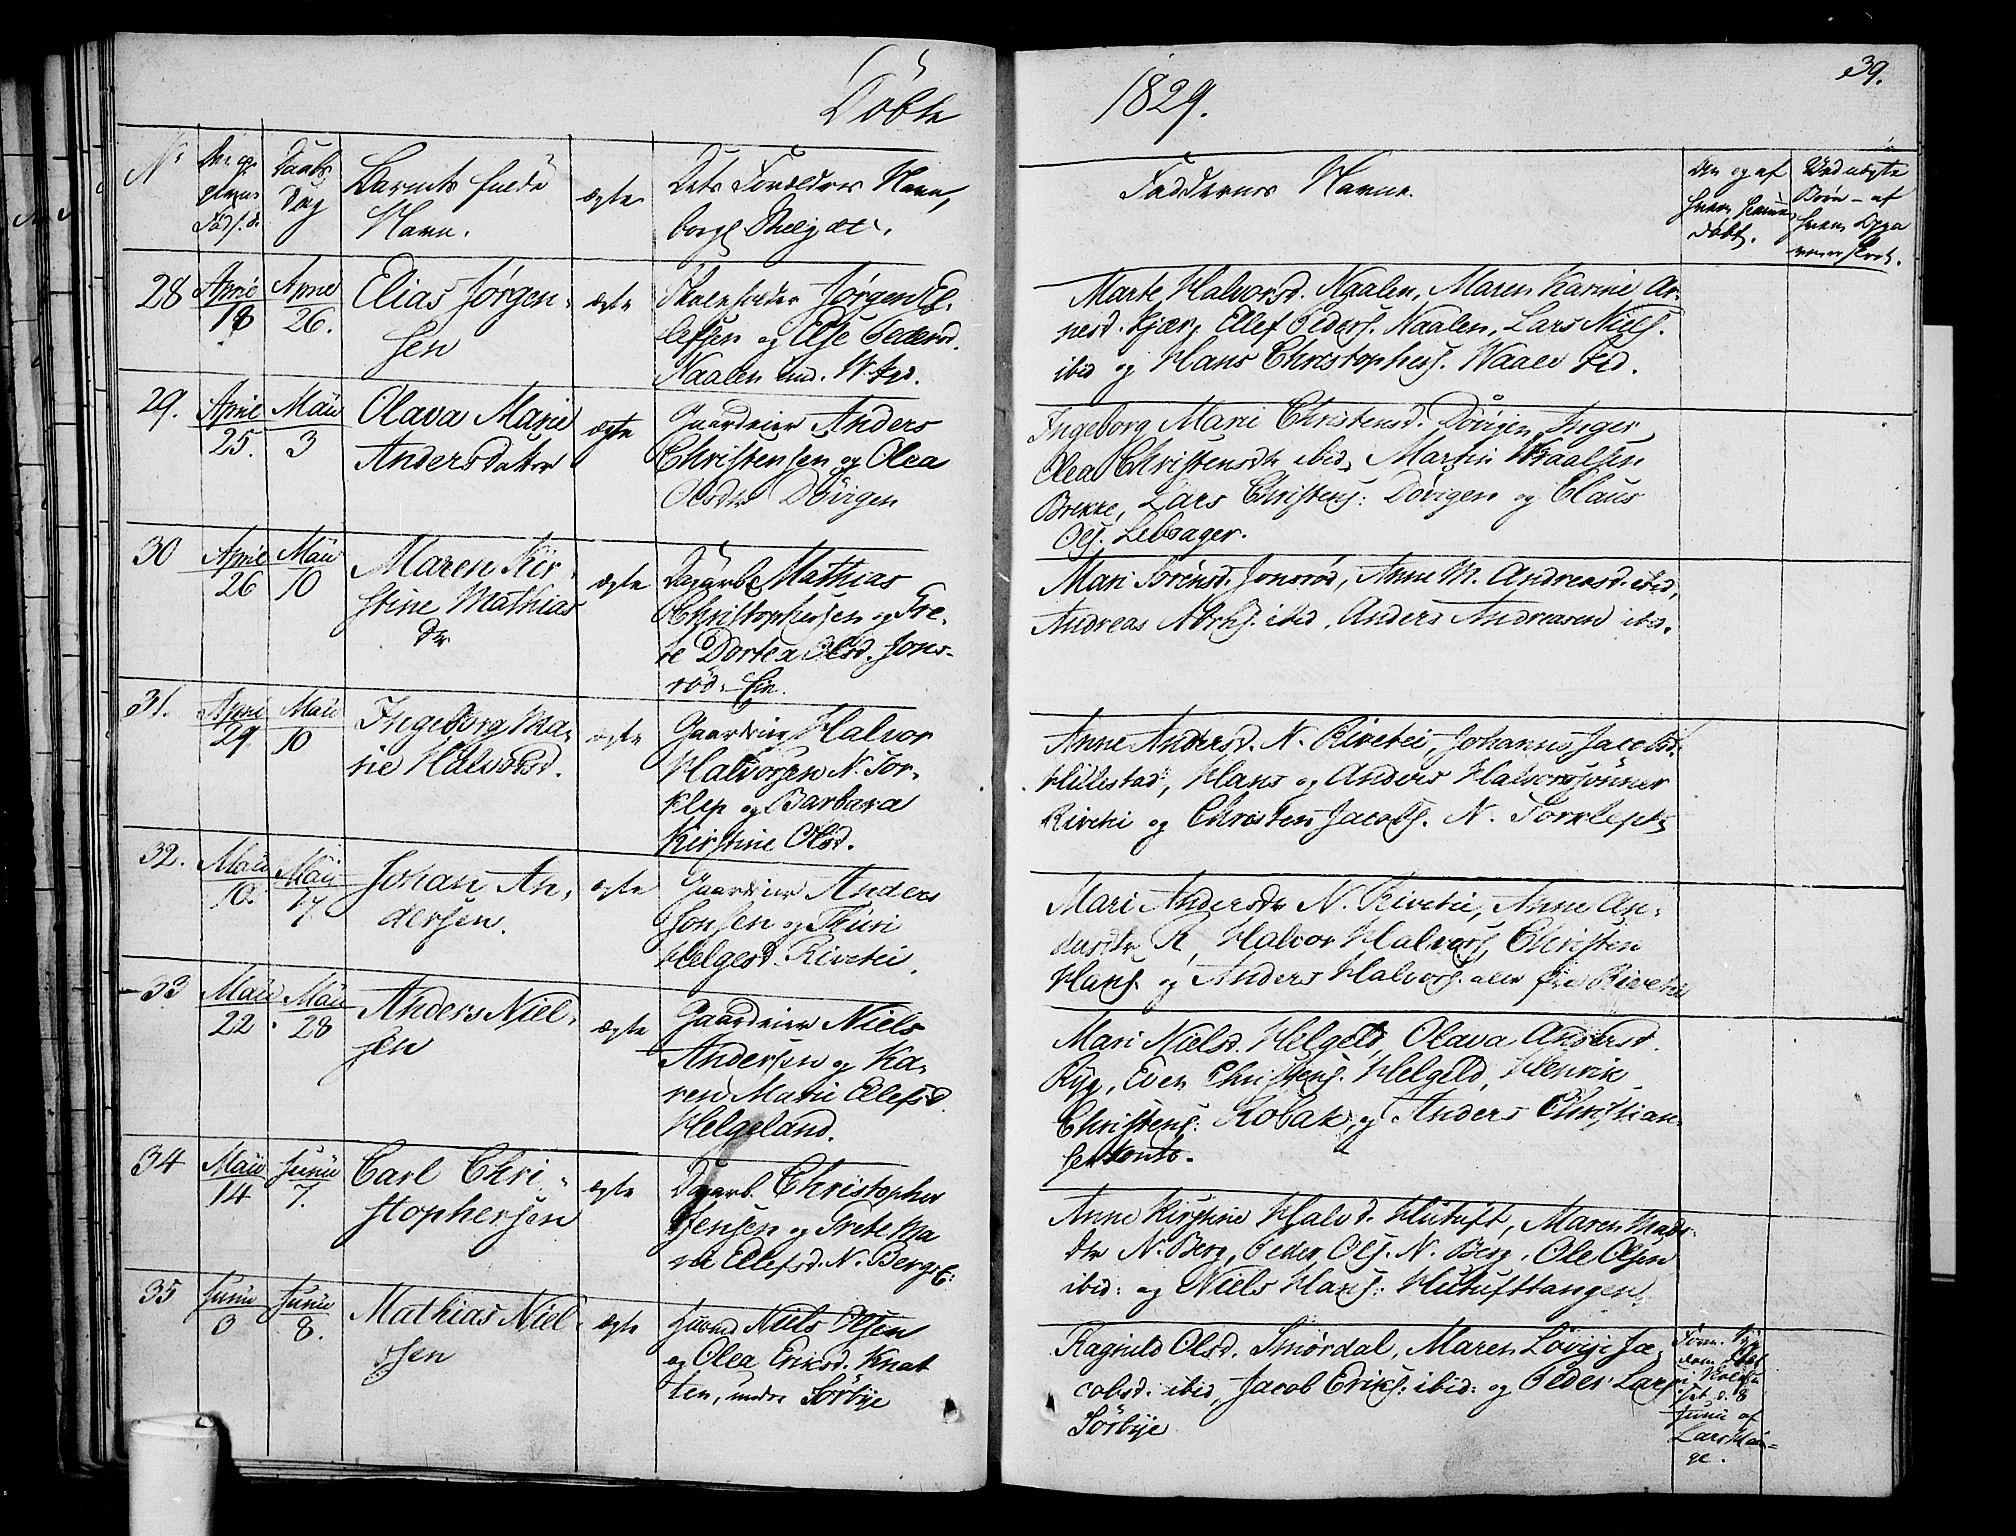 Døbte
1829.
39.
No
Daabs
Dag
Barnets fulde
Navn.
ægte
Dets Forældres Navn,
Faddernes Navne.
28
April
18
April
26.
Elias Jørgen-
sen
ægte
Skoleholder Jørgen El-
lefsen og Else Pedersd.
Naalen
Marte Halvorsd. Naalen, Maren Karine Ar-
nesd. Kjær, Ellef Peders. Naalen, Lars Niels.
ibid og Hans Christophers. Waale
29.
April
25.
Maii
3
Olava Marie
Andersdatter
ægte
Gaardeier Anders
Christensen og Olea
Olsdtr Dövigen
Ingeborg Marie Christensd. Dövigen, Inger
Olea Christensdtr ibid, Martin
Brekke, Lars Christens: Dövigen og Claus
Ols. Lebsager.
30
April
26
Maii
10
Maren Kir-
stine Mathias
dtr
ægte
Dagarb. Mathias
Christophersen og Gre-
te Dortea Olsd. Jons-
röd. Eie.
Mari Sörensd. Jonsröd, Anne M. Andreasd. ibid,
Andreas ibid, Anders Andreasen ibid.
31.
April
29
Maii
10
Ingeborg Ma-
rie Halvorsd.
ægte
Gaardeier Halvor
Halvorsen N. Tor-
klep og Barbara
Kirstine Olsd.
Anne Andersd. N. Rivetei, Johannes Jacobsd.
Hillestad, Hans og Anders Halvorssønner
Rivetei og Christen Jacobs. N. Torklep
32.
Maii
10.
Maii
17
Johan An-
dersen.
ægte
Gaardeier Anders
Jonsen og Thuri
Helgesd. Rivetei.
Mari Andersdtr N. Rivetei, Anne An-
dersdtr R, Halvor Halvors, Christen
Hans. og Anders Halvors. alle fra Rivetei
33
Maii
22
Maii
28
Anders Niel-
sen
ægte
Gaardeier Niels
Andersen og Ka-
ren Marie Ellefsd.
Helgeland.
Mari Nielsd. Helgeld, Olava Andersd.
Ryg, Even Christens. Helgeld, Henrik
Christens: Kobak, og Anders Christian-
sen
34
Maii
14
Junii
7.
Carl Chri-
stophersen
ægte
Dagarb. Christopher
Jensen og Grete Ma
rie Ellefsd. N. Bergs E:
Anne Kirstine Halvd. Hutuft, Maren Mads-
dtr N. Berg, Peder Ols. N. Berg, Ole Olsen
ibid: og Niels Hans: Hutufttangen.
35
Junii
3
Junii
8.
Mathias Niel
sen
ægte
Huusmd Niels Olsen
og Olea Eriksd. Knat
ten, under Sörbye
Ragnild Olsd. Smördal, Maren Lovise Ja-
cobsd. ibid, Jacob Eriks: ibid: og Peder Lars
Sörbye
d. 8
Junii af
Lars Hau-
ge.